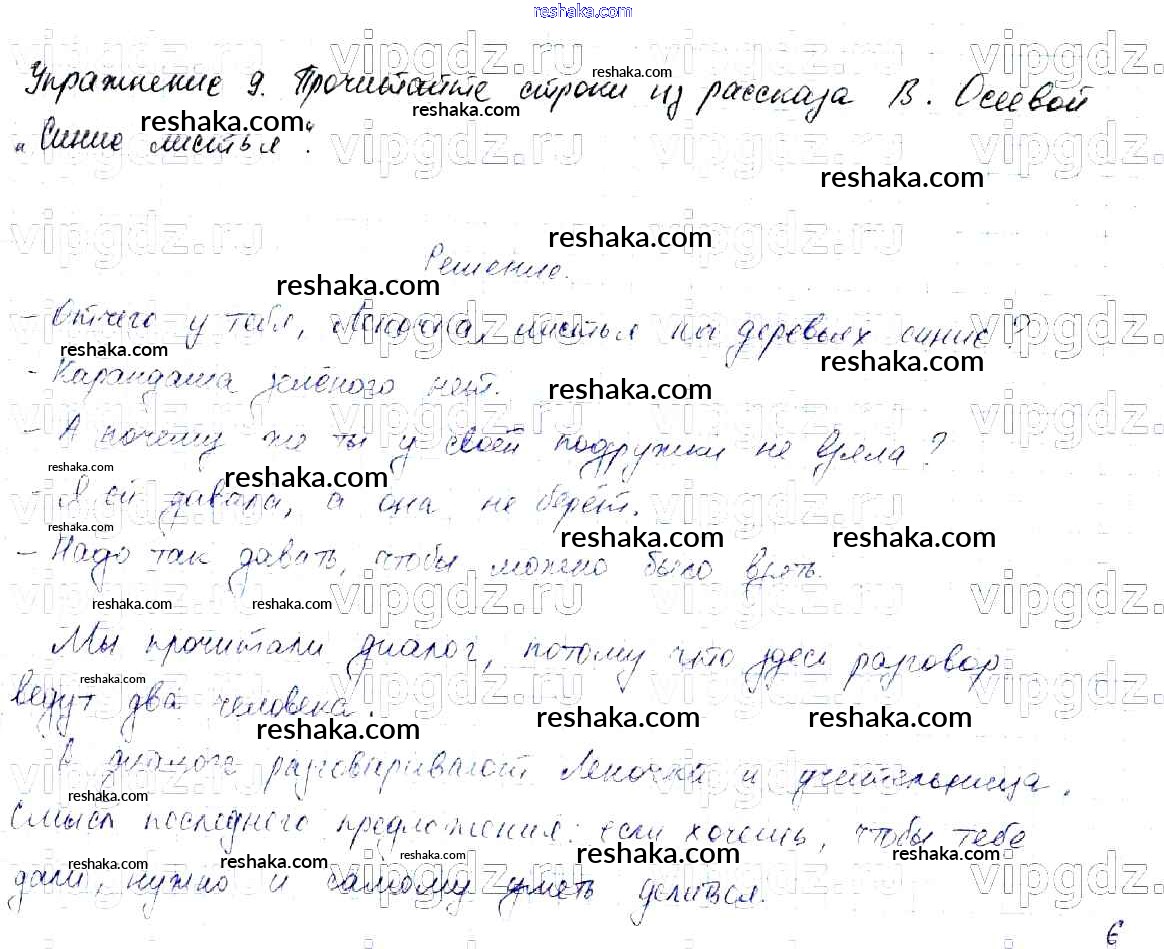 reshaka.com
Упражнение 9. Прочитайте строки из рассказа В. Осеевой
„Синие листья“.
Решение.
- Отчего у тебя, Леночка, листья на деревьях синие?
- Карандаша зелёного нет.
- А почему же ты у своей подружки не взяла?
- Я ей давала, а она не берёт.
- Надо так давать, чтобы можно было взять.
Мы прочитали диалог, потому что здесь разговор
ведут два человека.
В диалоге разговаривают Леночка и учительница.
Смысл последнего предложения: если хочешь, чтобы тебе
дали, нужно и самому уметь делиться.
6